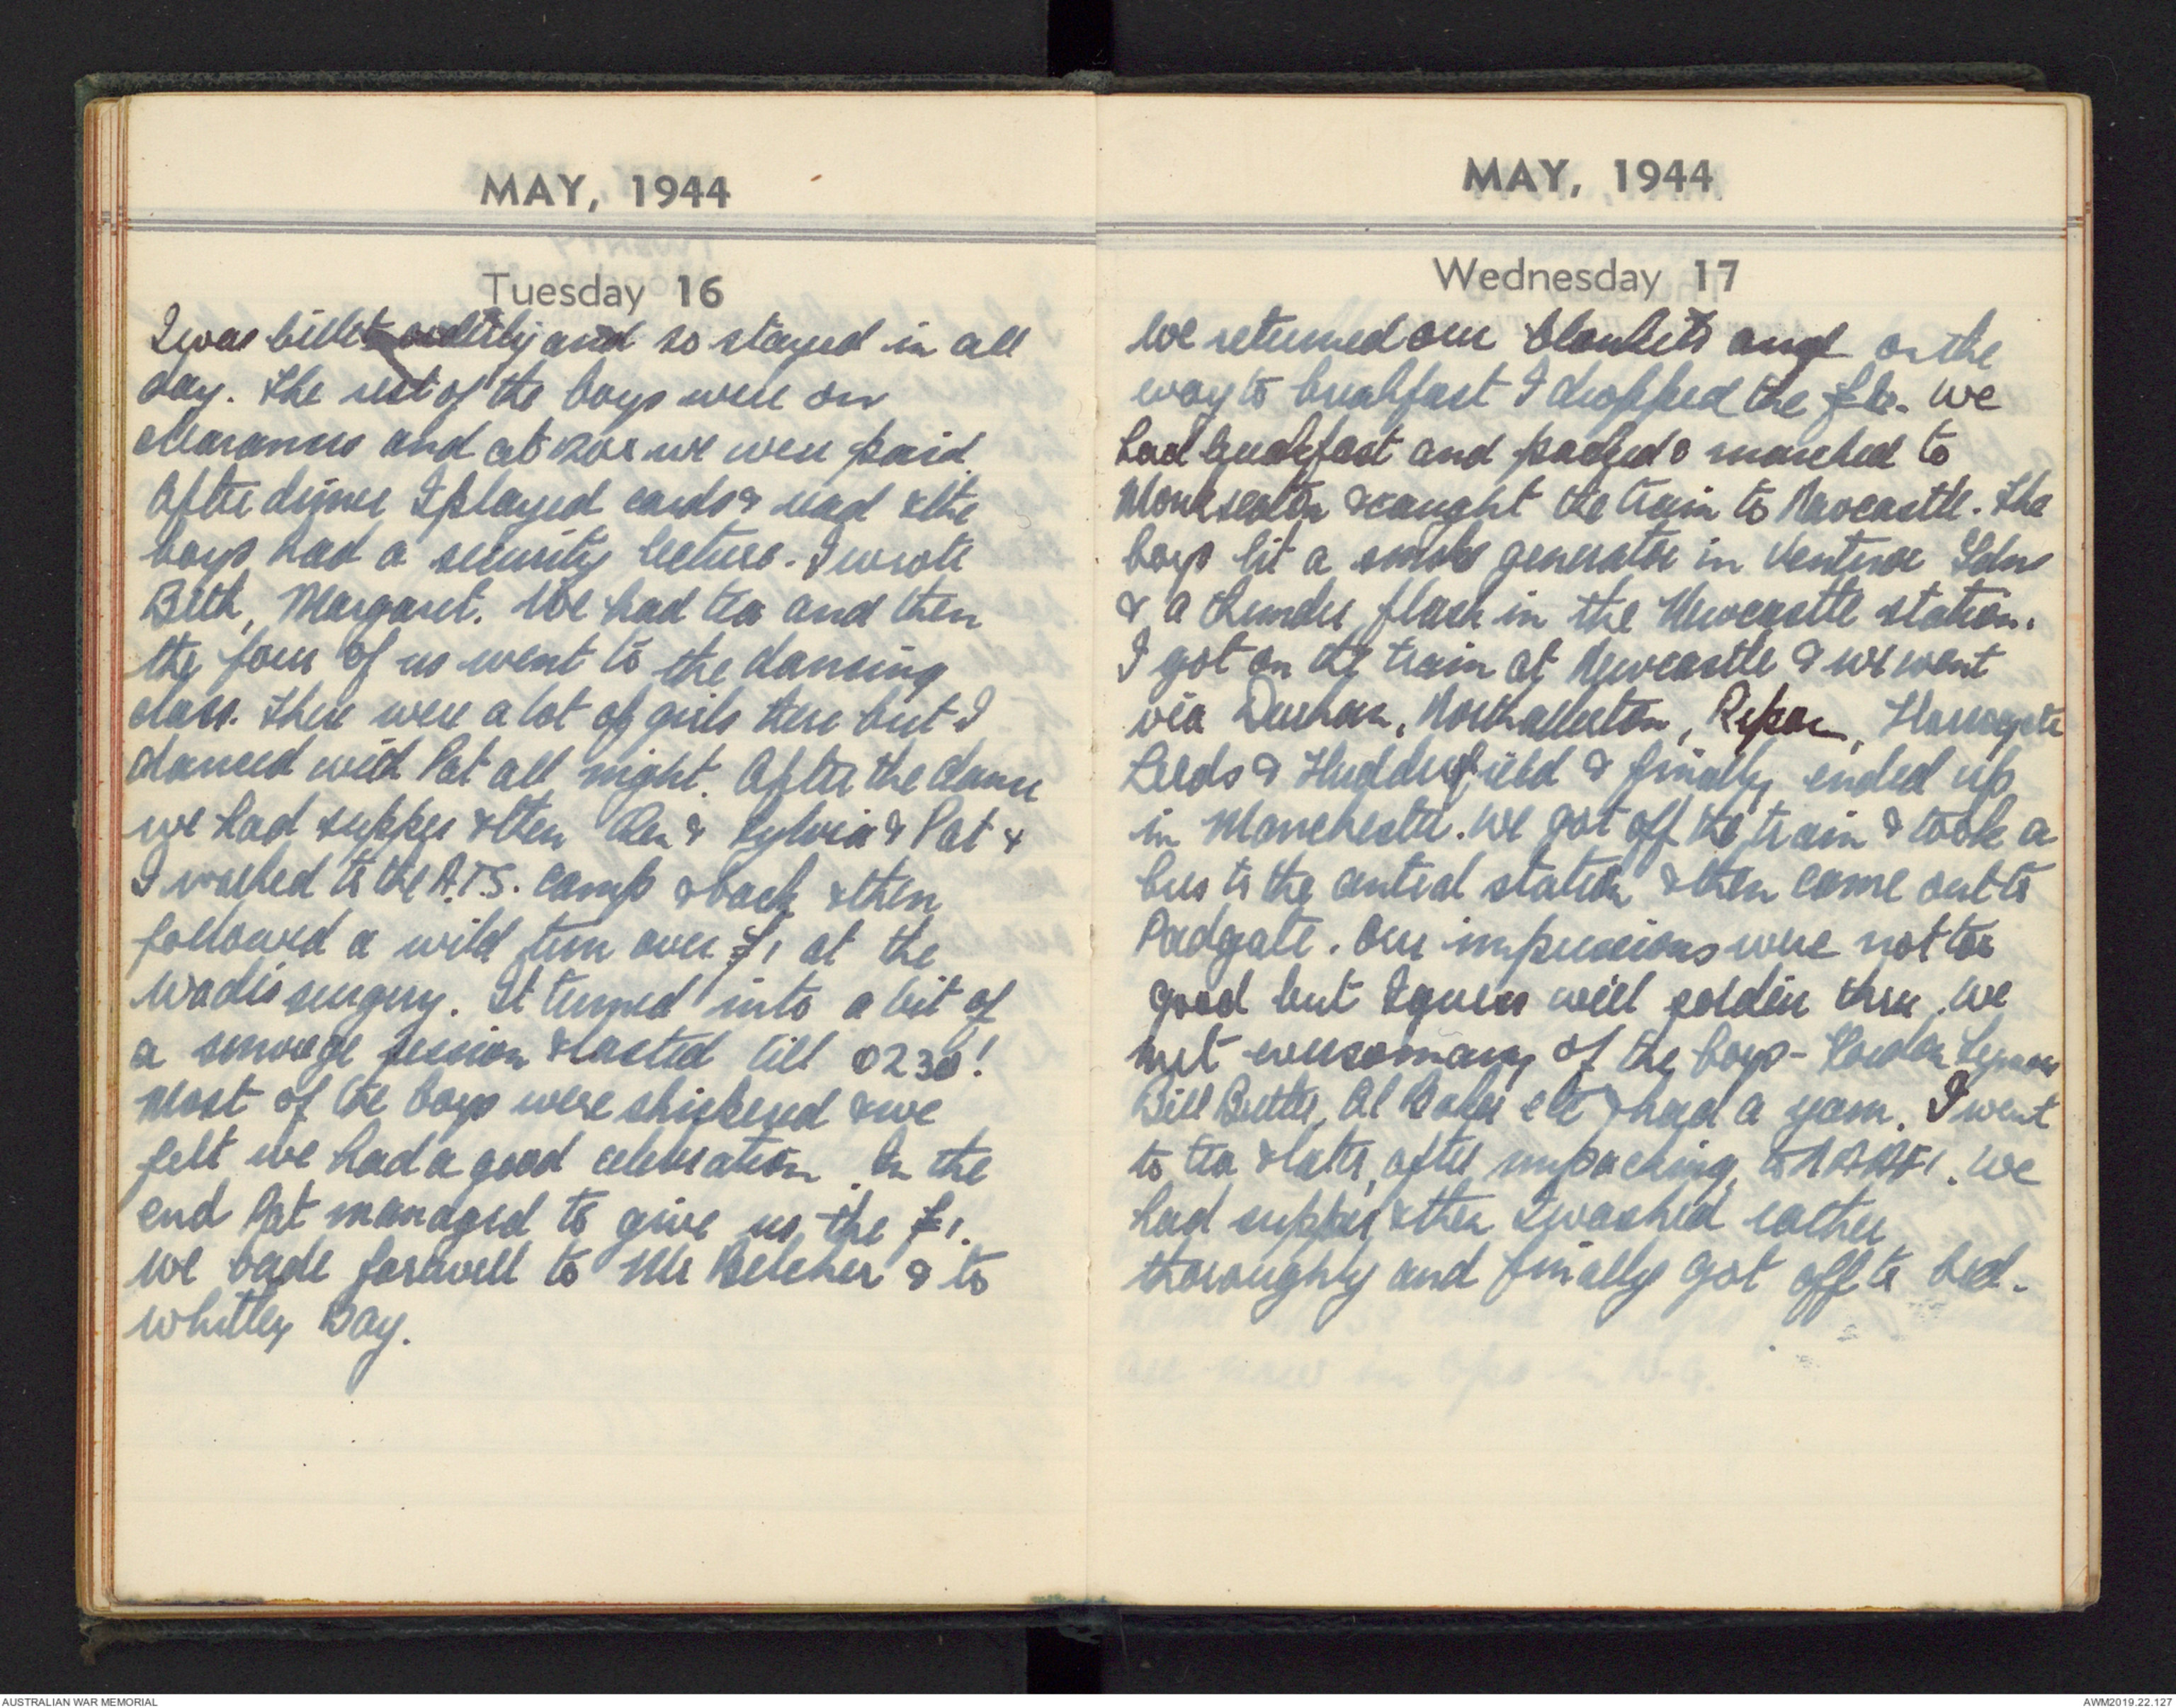 MAY, 1944
Tuesday 16
I was billet orderly and so stayed in all
day. The rest of the boys were on
clearances and at 1200 we were paid.
After dinner I played cards & read & the
boys had a security lecture. I wrote
Beth, Margaret. We had tea and then
the four of us went to the dancing
class. There were a lot of girls there but I
danced with Pat all night. After the dance
we had supper & then & Sylvia & Pat &
I walked to the A.T.S. camp & back & then
followed a wild turn over £1 at the
surgery. It turned into a bit of
a session & lasted till 0230!
Most of the boys were shickered & we
felt we had a good celebration. In the
end Pat managed to give us the £1.
We bade farewell to Mr Belcher & to
Whitley Bay.
MAY, 1944
Wednesday 17
We returned our blankets and on the
way to breakfast I dropped the We
had breakfast and packed & marched to
Monkseaton & caught the train to Newcastle. The
boys lit a smoke generator in Ventnor Gdns
& a thunder flash in the Newcastle station.
I got on the train at Newcastle & we went
via Durham, Northallerton, Ripon, Harrogate
Leeds & Huddersfield & finally ended up
in Manchester. We got off the train & took a
bus to the central station & then came out to
Padgate. Our impressions were not too
good but I guess will soldier thru. We
met ever so many of the boys - Lyman
Bill Buttle, Al Baker etc & had a yarn. I went
to tea & later, after unpacking, to NAAFI. We
had supper & then I washed rather
thoroughly and finally got off to bed.
AUSTRALIAN WAR MEMORIAL
AWM2019.22.127